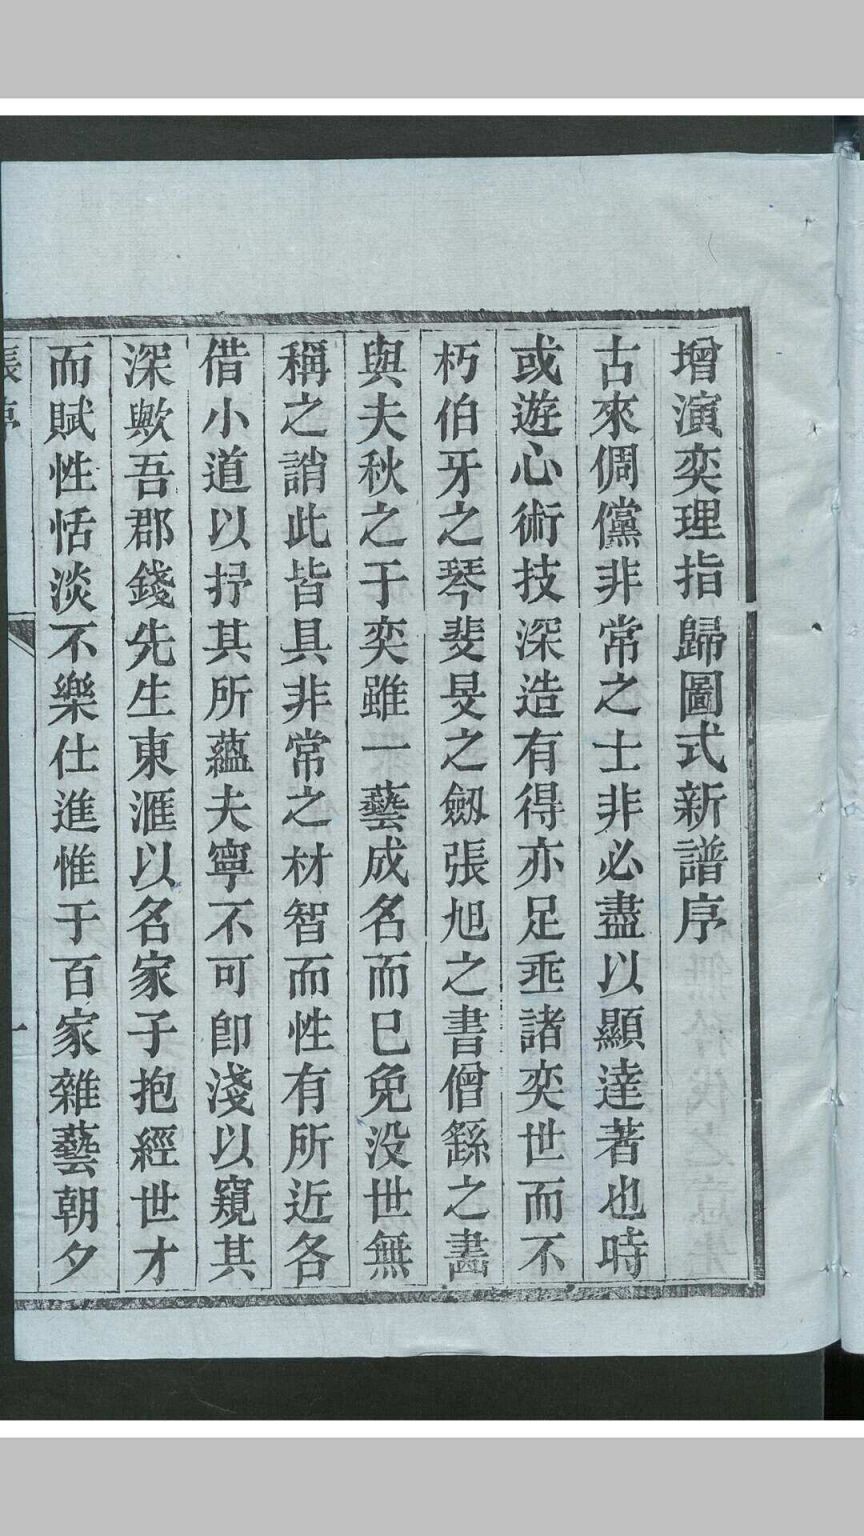 增演奕理指歸圖式新譜序
古來倜儻非常之士非必盡以顯達著也時
或遊心術技深造有得亦足垂諸奕世而不
朽伯牙之琴斐旻之劔張旭之書僧繇之畵
與夫秋之于奕雖一藝成名而已免没世無
稱之誚此皆具非常之材智而性有所近各
借小道以抒其所蘊夫寧不可卽淺以窺其
深歟吾郡錢先生東滙以名家子抱經世才
而賦性恬淡不樂仕進惟于百家雜藝朝夕
張序
一